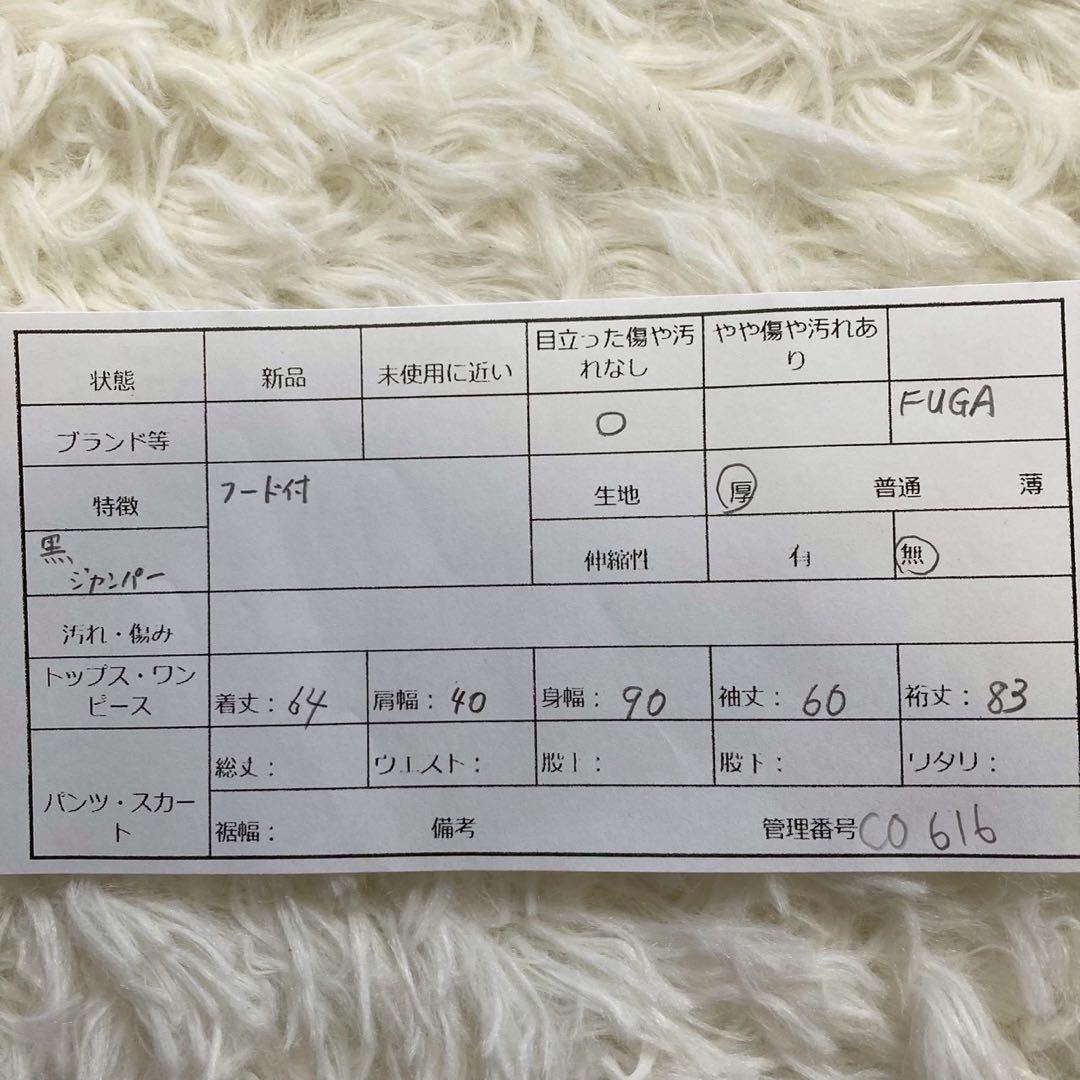 状態 新品 未使用に近い 目立った傷や汚れなし やや傷や汚れあり
ブランド等 ○ FUGA
特徴 フード付 生地 厚 普通 薄
黒 ジャンパー 伸縮性 有 無
汚れ・傷み
トップス・ワンピース 着丈：64 肩幅：40 身幅：90 袖丈：60 裄丈：83
パンツ・スカート 総丈： ウエスト： 股上： 股下： ワタリ：
裾幅： 備考 管理番号 CO 616